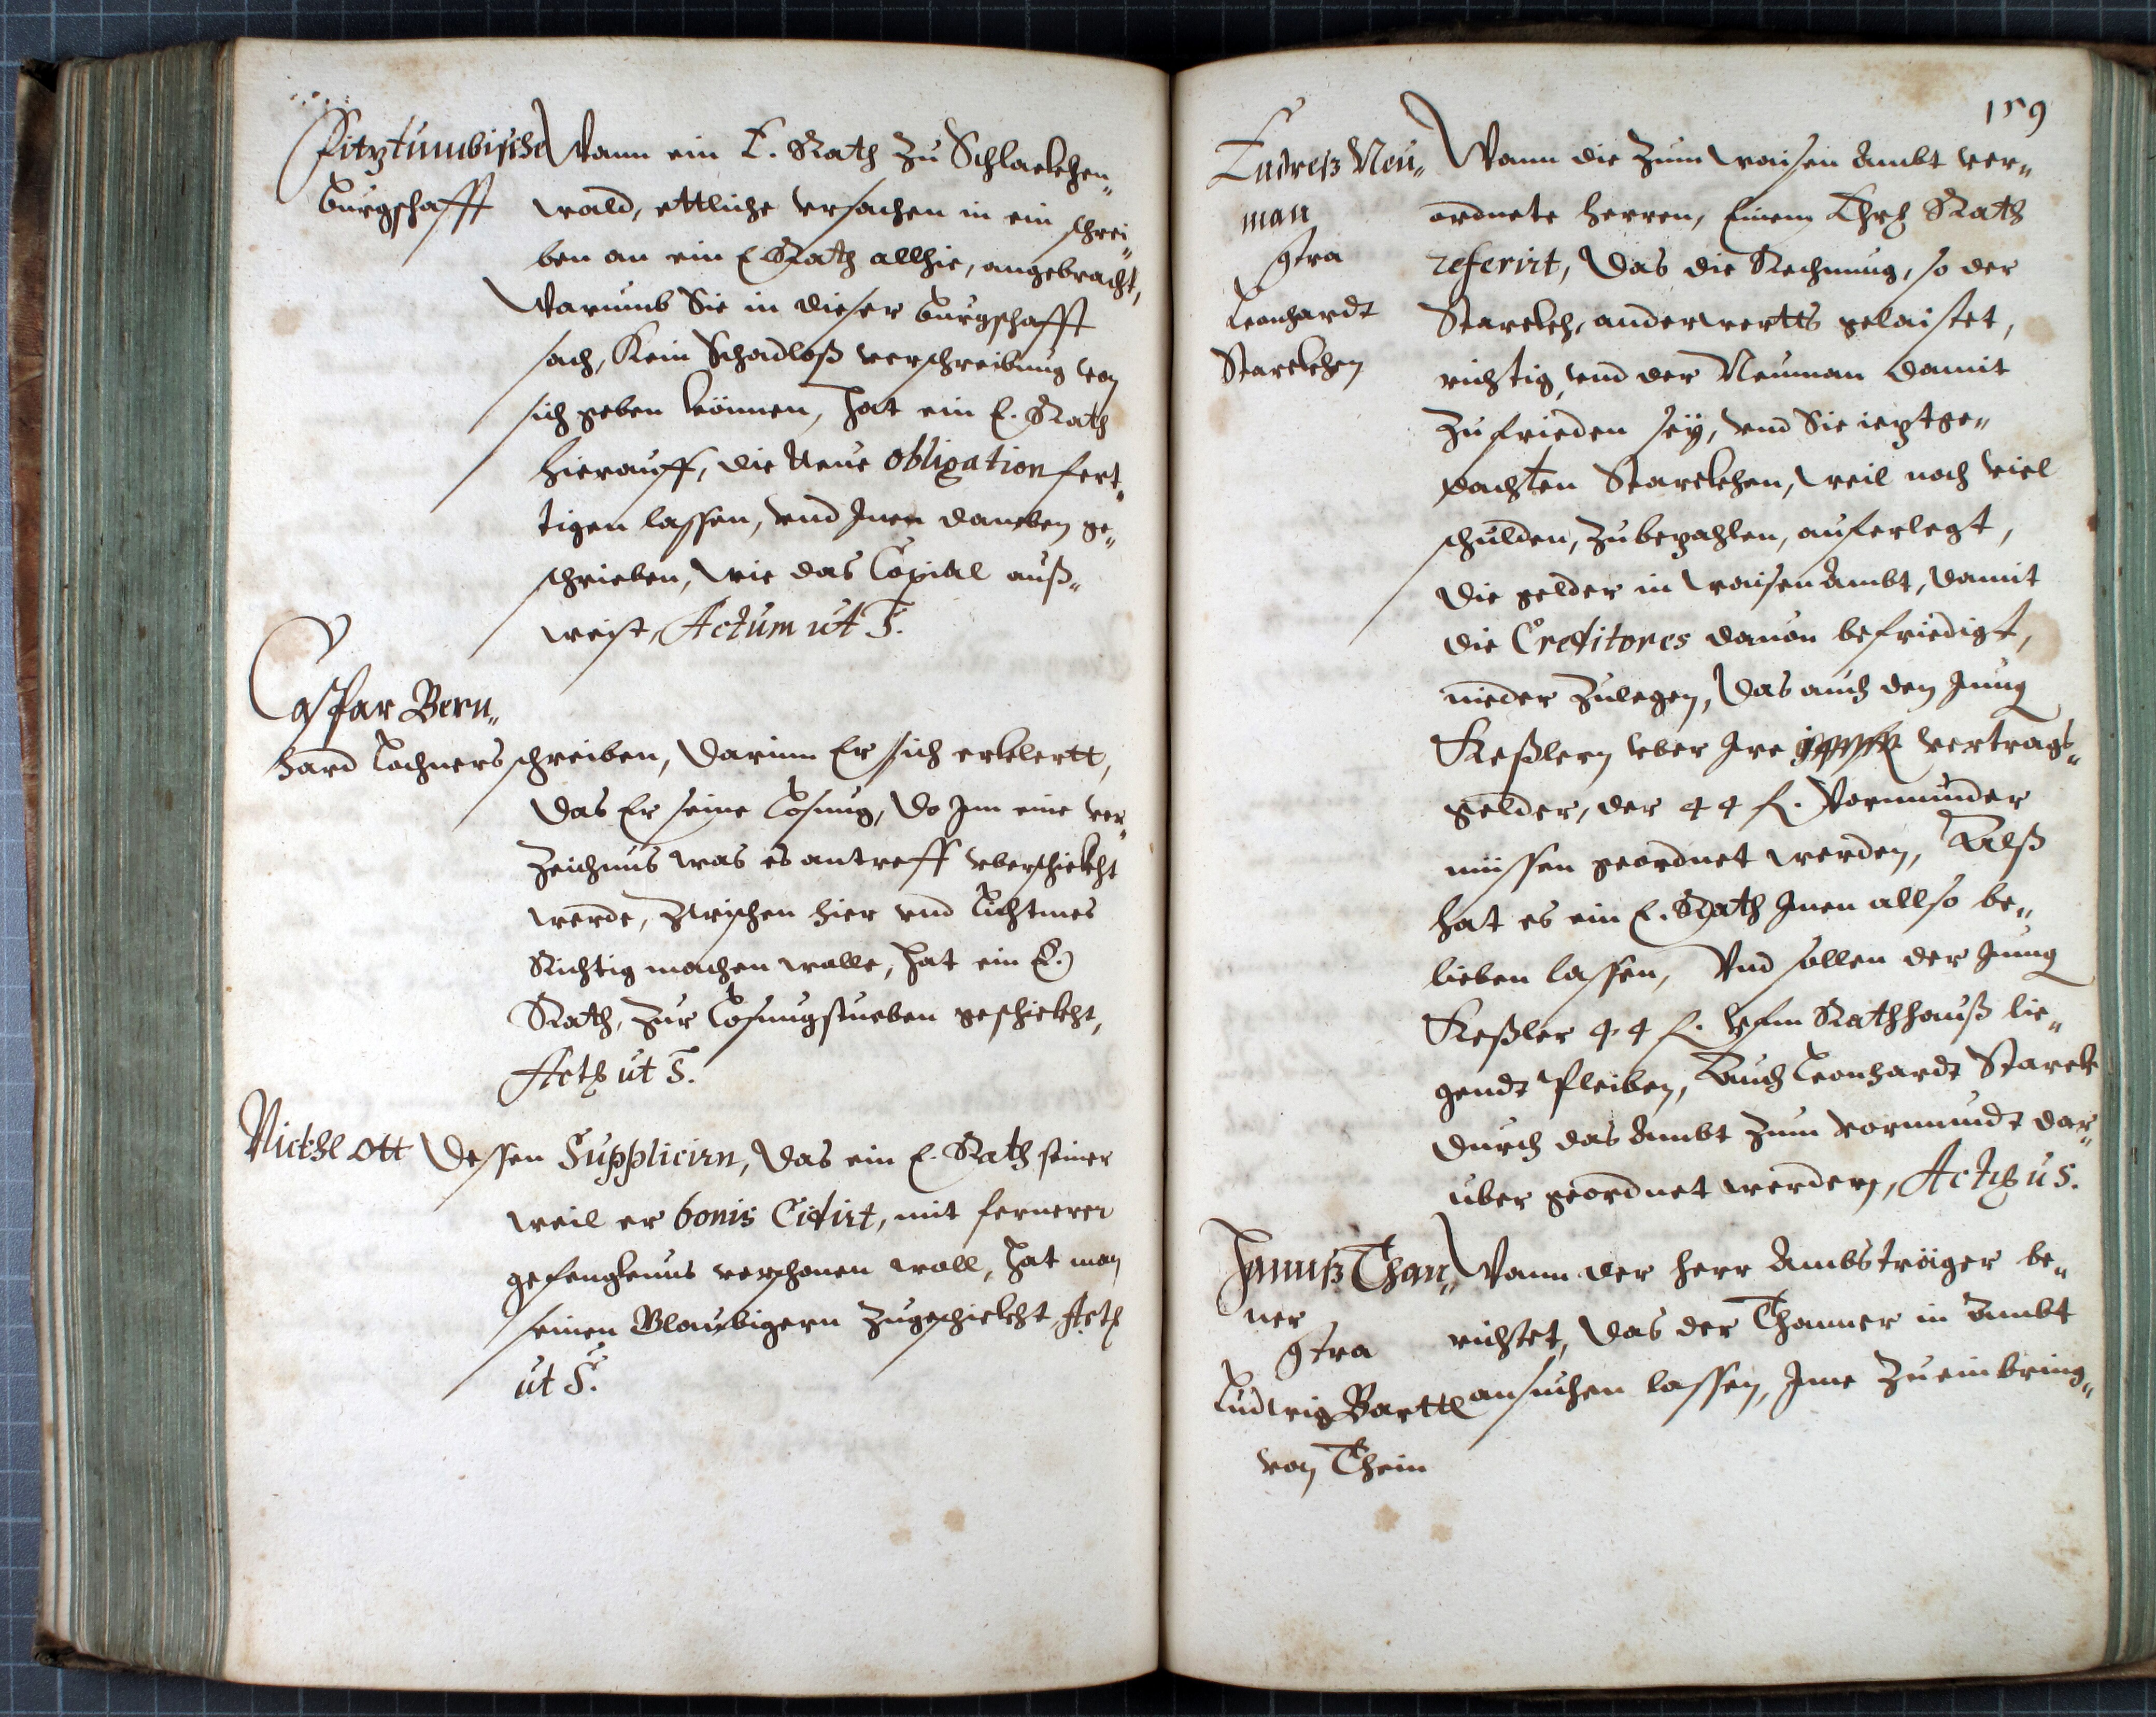 Fitztumbische Wann ein E. Rath zu Schlackhen„
Burgschafft wald, ettliche vrsachen in ein schrei„
ben an ein E Rath allhie, angebracht,
Warumb Sie in dieser burgschafft
sach, Kein Schadloß verschreibung von
sich geben können, hat ein E. Rath
hierauff, die Neue obligation fert„
tigen lassen, vnd Inen daneben ge„
schrieben, wie das Copial auß„
weist, Actum ut S.
Caspar Bern„
hard Lochners schreiben, darinn Er sich erklertt,
das Er seine Losung, do Jm eine ver„
zeichnus was es antreff vberschickht
werde, zwischen hier vnd Lichtmes
Richtig machen wolle, hat ein E.
Rath, zur Losungstueben geschickht,
Act ut S.
Nickhl Ott Dessen Supplicirn, das ein E. Rath seiner
weil er bonis Cidirt, mit fernerer
gefengknus verschonen woll, hat man
seinen Glaubigern zugeschickht, Act
ut S.
159
Endreß Neu„ Wann die zum waisen Ambt ver„
man ordnete Herren, Einem Ehrh Rath
9tra referirt, das die Rechnung, so der
Leonhardt Starckh, anderwertts gelaistet,
Starckhen richtig, vnd der Neuman damit
zufrieden sey, vnd Sie ieztge„
dachten Starckhen, weil noch viel
schulden, zubezahlen, auferlegt,
die gelder in waisen Ambt, damit
die Creditores dauon befriedigt,
nieder zulegen, das auch den Jung
Keßlern vber Ire vertrags„
gelder, der 44 f. Vormunder
müssen geordnet werden, Alß
hat es ein E. Rath Inen allso be„
lieben lassen, Vnd sollen der Jung
Keßler 44 f. vfm Rathhauß lie„
gendt pleiben, Auch Leonhardt Starck
durch das Ambt zum vormundt dar„
uber geordnet werden, Act u S.
Hannß Than„ Wann der Herr Ambsträger be„
ner richtet, das der Thanner in Ambt
9tra
Ludwig Bartl ansuchen lassen, Ime zueinbring„
von Thein